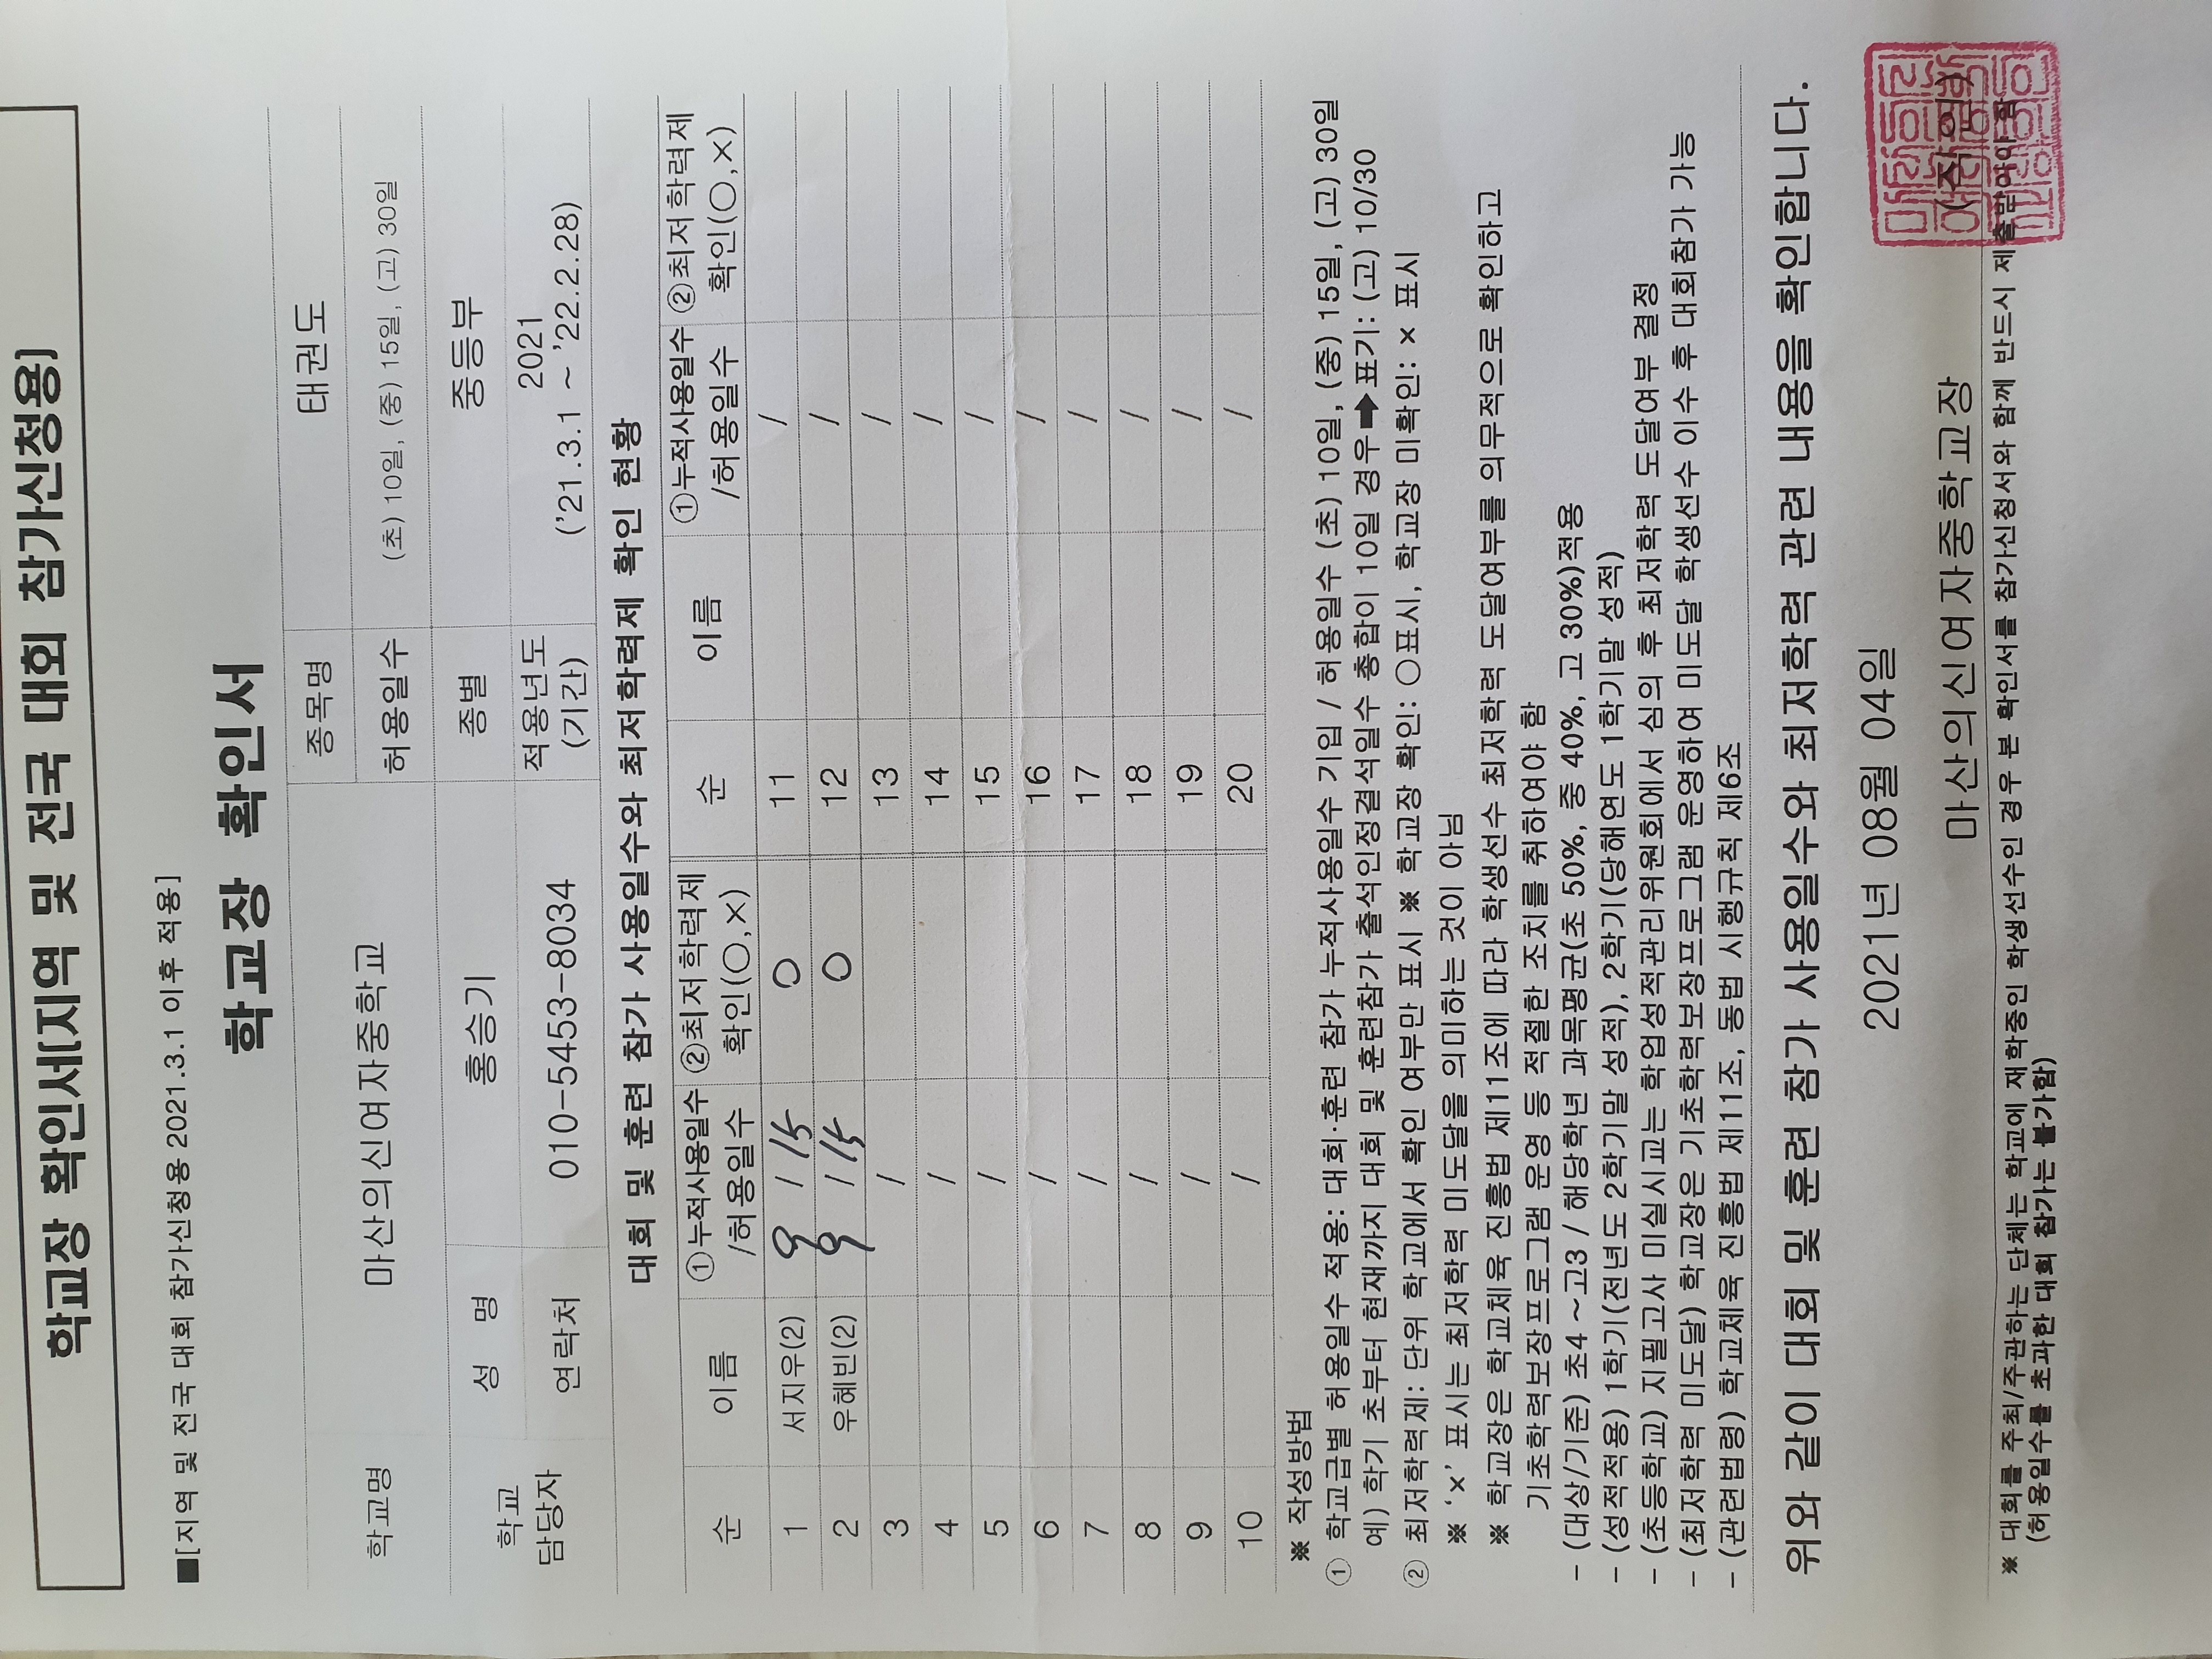 학교장 확인서[지역 및 전국 대회 참가신청용]
■[지역 및 전국 대회 참가신청용 2021.3.1 이후 적용]
학교장 확인서
학교명 마산의신여자중학교 종목명 태권도
허용일수 (초) 10일, (중) 15일, (고) 30일
학교 담당자 성 명 홍승기 종별 중등부
연락처 010-5453-8034 적용년도 (기간) 2021 ('21.3.1 ~ '22.2.28)
대회 및 훈련 참가 사용일수와 최저학력제 확인 현황
순 이름 ①누적사용일수 /허용일수 ②최저학력제 확인(○,×) 순 이름 ①누적사용일수 /허용일수 ②최저학력제 확인(○,×)
1 서지우(2) 9 / 15 ○ 11 /
2 우혜빈(2) 9 / 15 ○ 12 /
3 / 13 /
4 / 14 /
5 / 15 /
6 / 16 /
7 / 17 /
8 / 18 /
9 / 19 /
10 / 20 /
※ 작성방법
① 학교급별 허용일수 적용: 대회·훈련 참가 누적사용일수 기입 / 허용일수 (초) 10일, (중) 15일, (고) 30일
예) 학기 초부터 현재까지 대회 및 훈련참가 출석인정결석일수 총합이 10일 경우➡표기: (고) 10/30
② 최저학력제: 단위 학교에서 확인 여부만 표시 ※ 학교장 확인: ○표시, 학교장 미확인: × 표시
※ '×' 표시는 최저학력 미도달을 의미하는 것이 아님
※ 학교장은 학교체육 진흥법 제11조에 따라 학생선수 최저학력 도달여부를 의무적으로 확인하고
기초학력보장프로그램 운영 등 적절한 조치를 취하여야 함
- (대상/기준) 초4 ~고3 / 해당학년 과목평균(초 50%, 중 40%, 고 30%)적용
- (성적적용) 1학기(전년도 2학기말 성적), 2학기(당해연도 1학기말 성적)
- (초등학교) 지필고사 미실시교는 학업성적관리위원회에서 심의 후 최저학력 도달여부 결정
- (최저학력 미도달) 학교장은 기초학력보장프로그램 운영하여 미도달 학생선수 이수 후 대회참가 가능
- (관련법령) 학교체육 진흥법 제11조, 동법 시행규칙 제6조
위와 같이 대회 및 훈련 참가 사용일수와 최저학력 관련 내용을 확인합니다.
2021년 08월 04일
마산의신여자중학교장 (직인)
※ 대회를 주최/주관하는 단체는 학교에 재학중인 학생선수인 경우 본 확인서를 참가신청서와 함께 반드시 제출받아야 함
(허용일수를 초과한 대회 참가는 불가함)